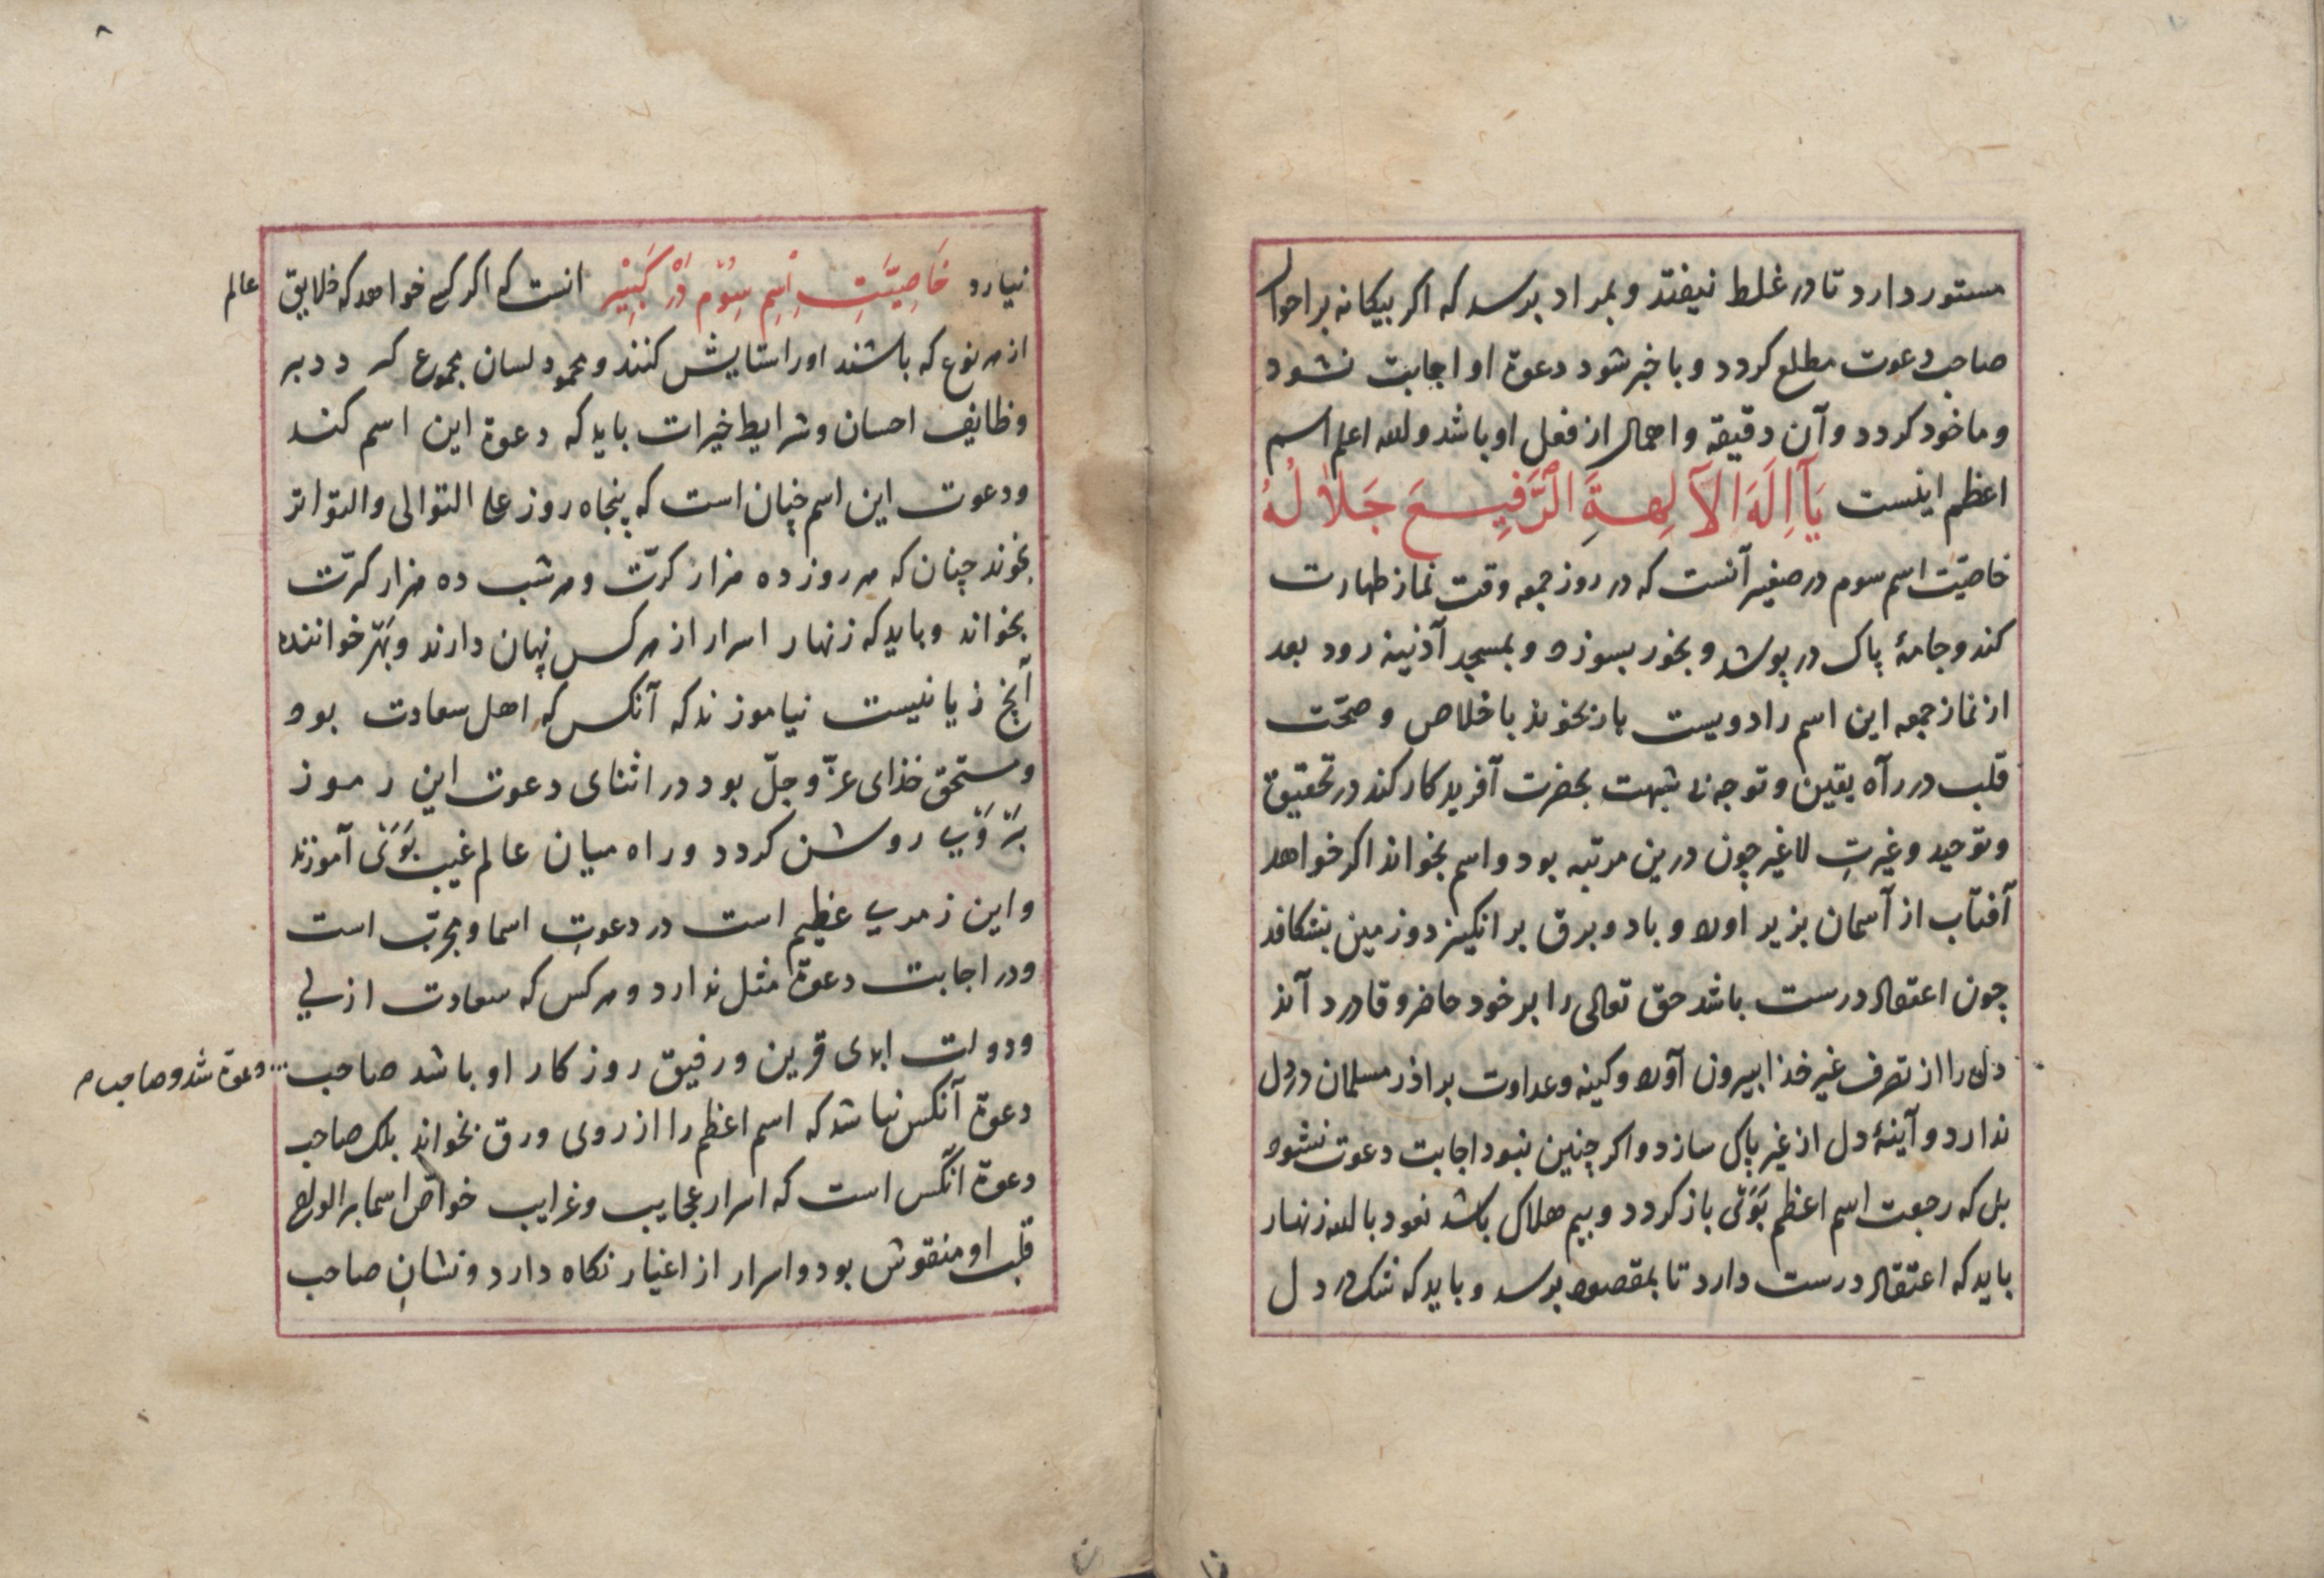 مستور دارد تا در غلط نیفتد و بمراد برسد که اکر بیکانه بر احوال
صاحب دعوت مطلع کردد و با خبر شود دعوة او اجابت نشود
و ماخود کردد و آن دقیقه و اهمال از فعل او باشد والله اعلم اسم
اعظم اینست یَآ اِلَهَ الآلِهةِ الرَّفِیعَ جَلَالُهُ
خاصیّت اسم سوم در صغیر آنست که در روز جمعه وقت نماز طهارت
کند و جامهٔ پاک در پوشد و بخور بسوزد و بمسجد آذینه رود بعد
از نماز جمعه این اسم را دویست بار بخوند باخلاص و صحّت
قلب در رآه یقین و توجه بی شبهت بحضرت آفریدکار کند در تحقیق
و توحید و غیرتِ لاغیر چون درین مرتبه بود و اسم بخواند اکر خواهد
آفتاب از آسمان بزیر اورد و باد و برق بر انکیزد و زمین بشکافد
چون اعتقاد درست باشد حق تعالی را بر خود حاضر و قادر دآند
دل را از تصرف غیر خذا بیرون آورد و کینه و عداوت براذر مسلمان در دل
ندارد و آینهٔ دل از غیر پاک سازد و اکر چنین نبود اجابت دعوت نشود
بل که رجعت اسم اعظم بَوَیْ باز کردد و بیم هلاک باشد نعود بالله زنهار
باید که اعتقاد درست دارد تا بمقصود برسد و باید که شک در دل
۸
نیارد خَاصِیَّتِ اِسْمِ سِوُّم دَرْ کَبِیْر انست که اکر کسی خواهد که خلایق عالم
از هر نوع که باشند اورا ستایش کنند و محمود لسان مجموع کردد بر
وظایف احسان و شرایط خیرات باید که دعوة این اسم کند
و دعوت این اسم چنان است که پنجاه روز علی التوالی والتواتر
بخوند چنان که هر روز ده هزار کرّت و هر شب ده هزار کرّت
بخواند و باید که زنهار اسرار از هر کس پنهان دارند و بَهَر خواننده
آنچ زیانیست نیاموزند که آنکس که اهل سعادت بود
و مستحق خذای عزّ و جلّ بود در اثنای دعوت این رموز
بَرْ وَیْ روشن کردد و راه میان عالم غیب بَوَیْ آموزند
و این زمری عظیم است در دعوتِ اسما و مجرّب است
و در اجابت دعوة مثل ندارد و هر کس که سعادت ازلی
و دولت ابدی قرین و رفیق روزکار او باشد صاحب دعوة شد و صاحب
دعوة آنکس نباشد که اسم اعظم را از روی ورق بخواند بلک صاحب
دعوة آنکس است که اسرار عجایب و غرایب خواصّ اسما بر الواح
قلب او منقوش بود و اسرار از اغیار نکاه دارد و نشانِ صاحب